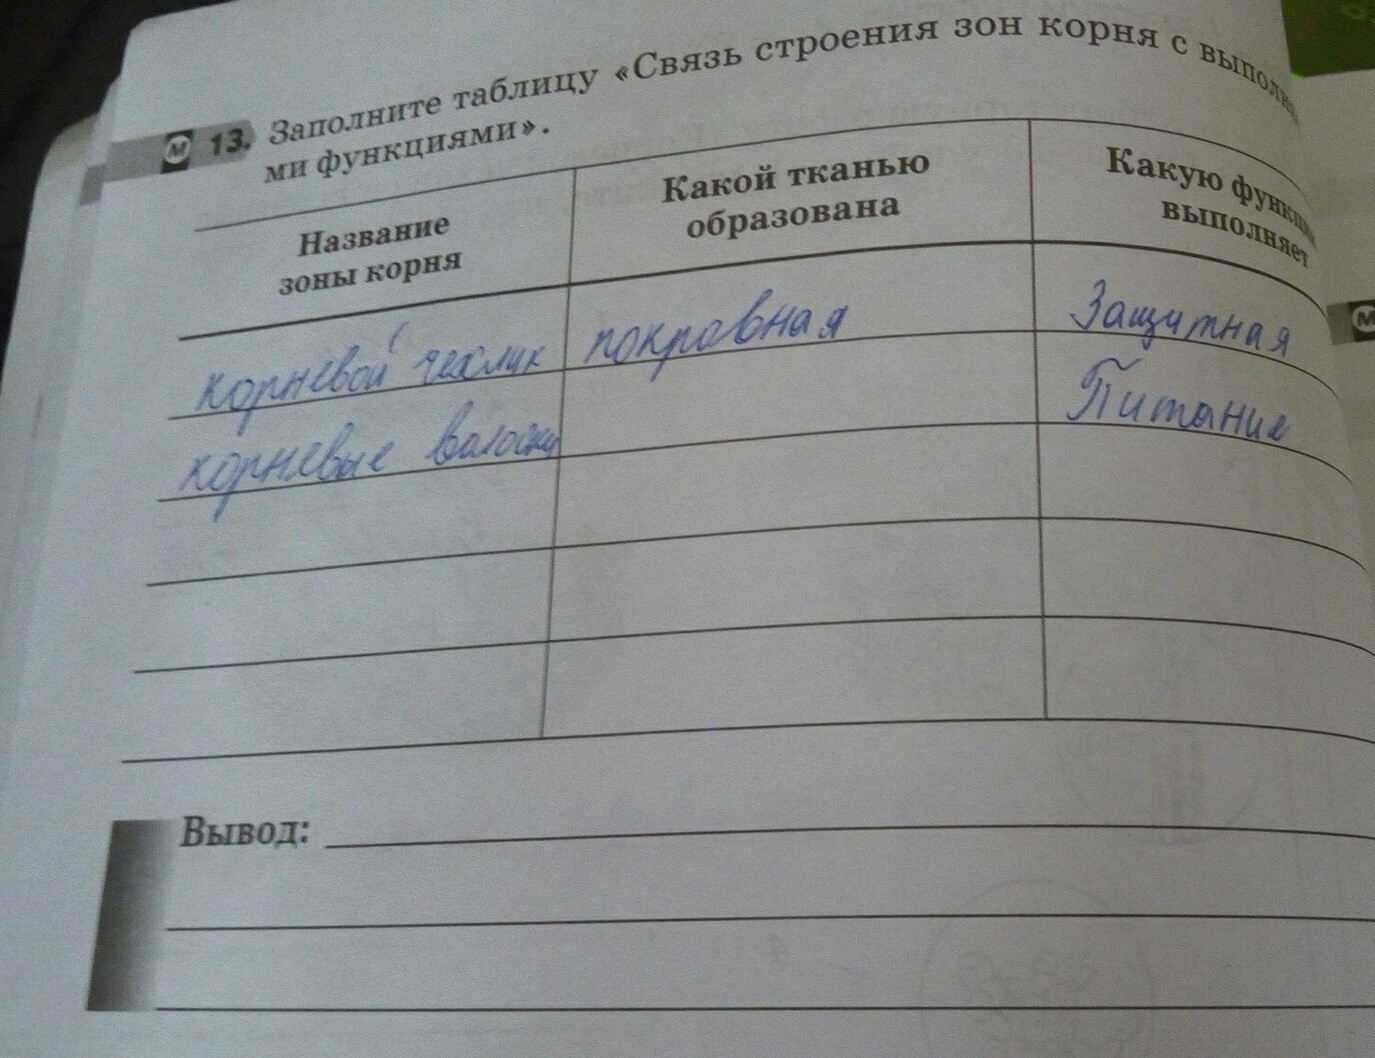 М 13. Заполните таблицу «Связь строения зон корня с выполн
ми функциями».
Название
зоны корня
Какой тканью
образована
Какую функци
выполняет
корневой чехлик
покровная
Защитная
корневые волоски
Питание
Вывод:
М